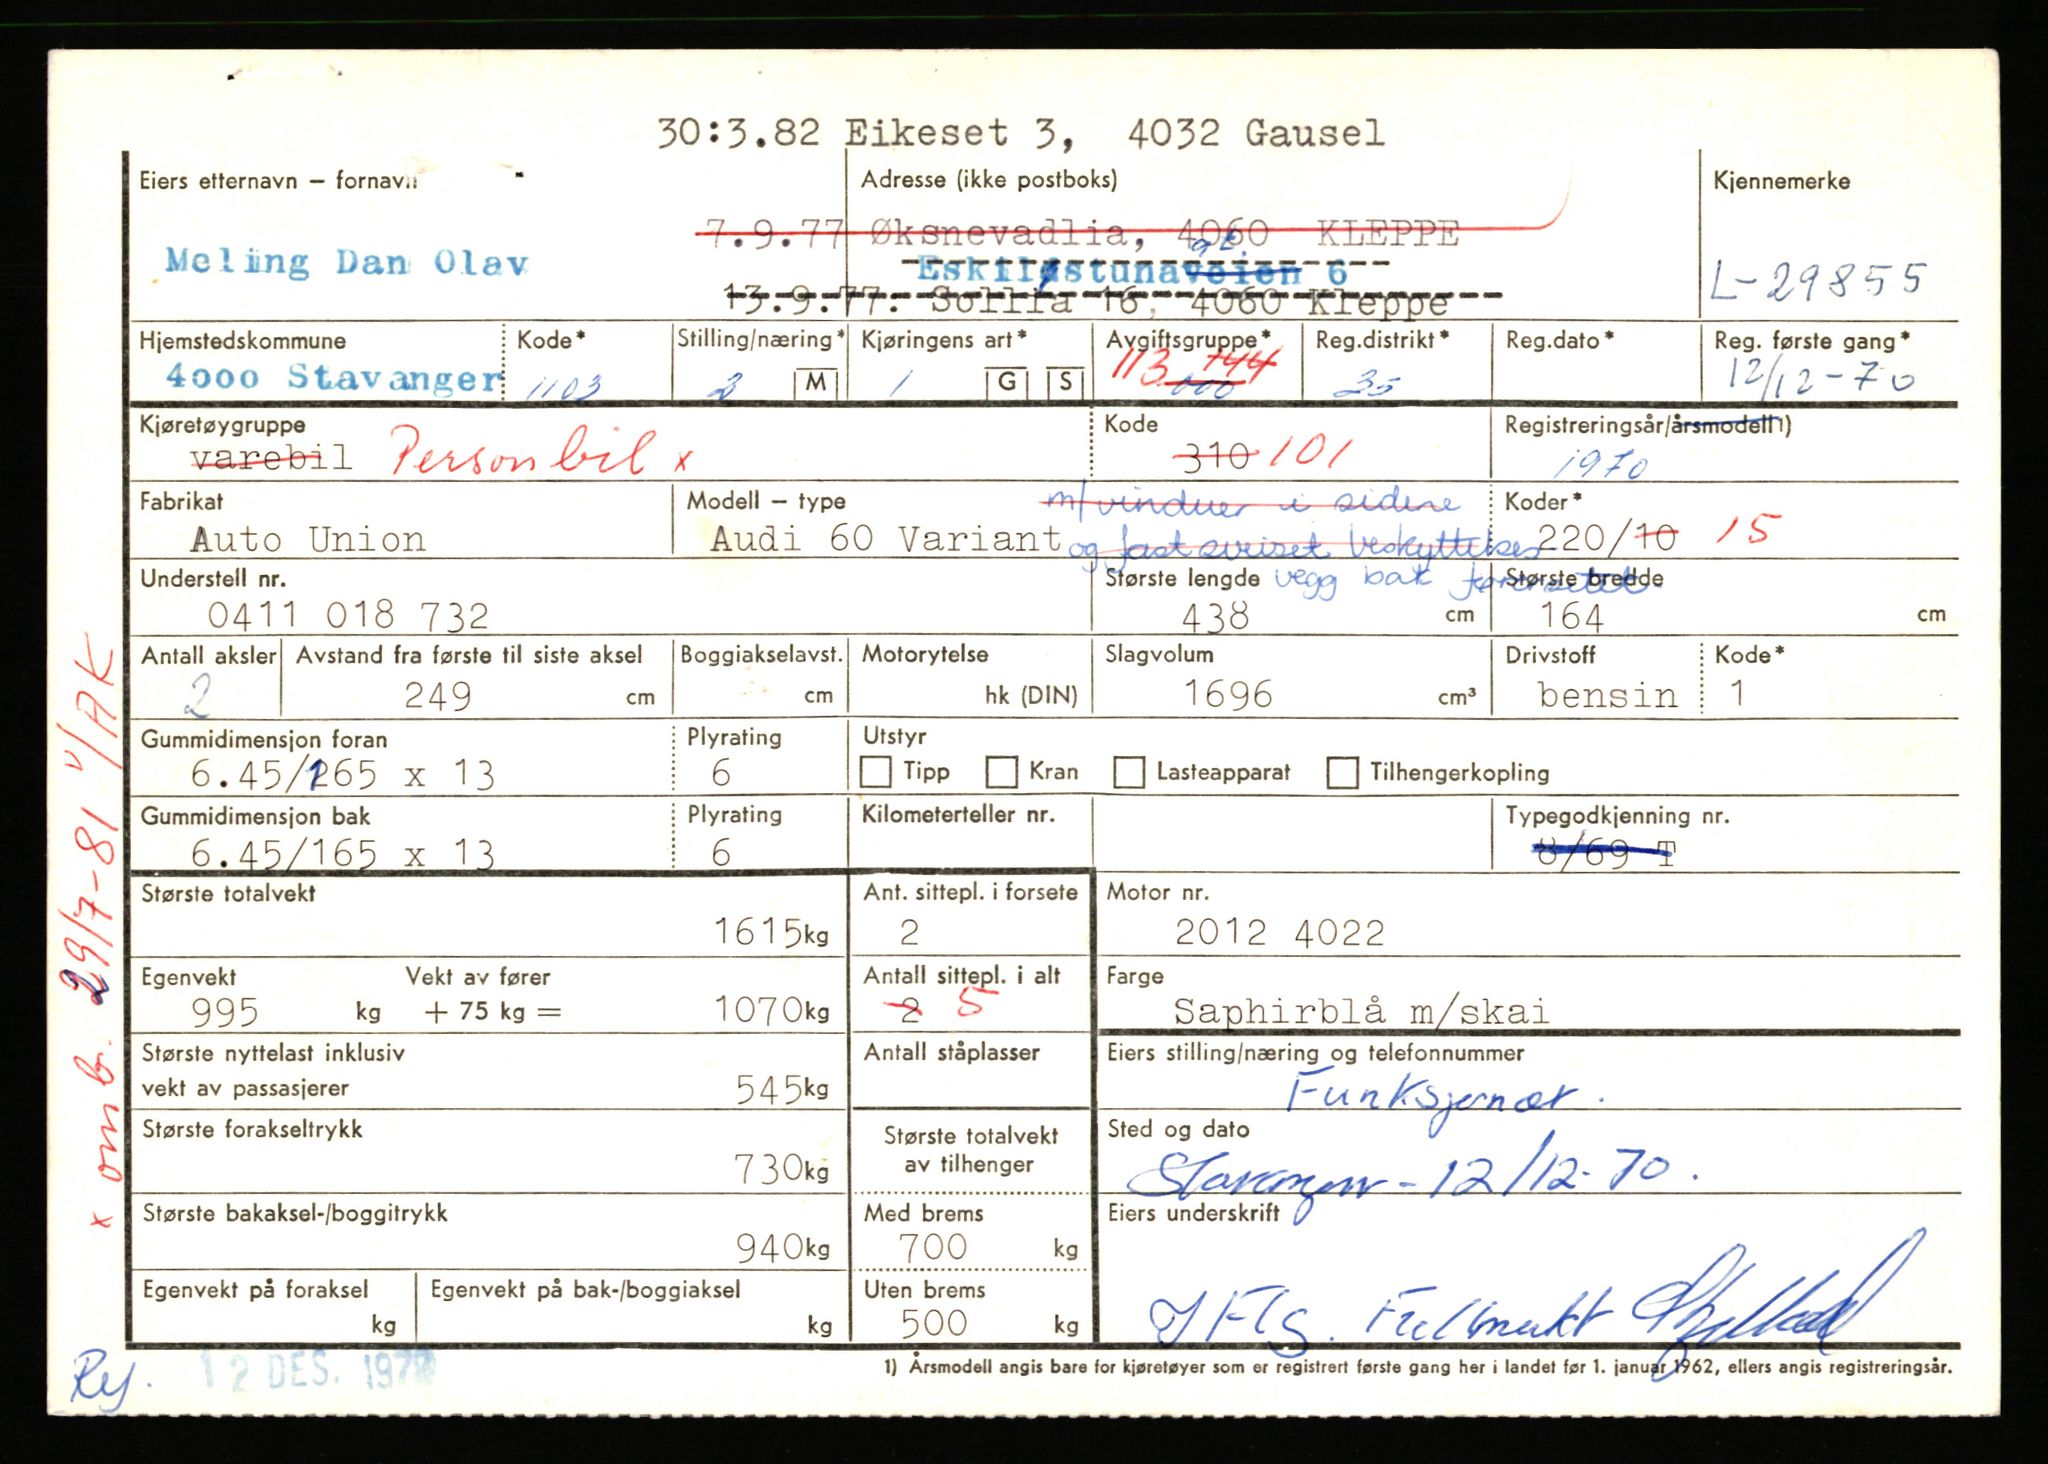 30:3.82 Eikeset 3, 4032 Gausel
Eiers etternavn – fornavn
Adresse (ikke postboks)
Kjennemerke
7.9.77 Øksnevadlia, 4060 KLEPPE
Meling Dan Olav
Eskilstunaveien 6
gt.
L-29855
13.9.77. Sollia 16, 4060 Kleppe
Hjemstedskommune
Kode*
Stilling/næring*
Kjøringens art*
Avgiftsgruppe*
Reg.distrikt*
Reg.dato*
Reg. første gang*
4000 Stavanger
1103
2
M
1
G
S
113 744
000
35
12/12-70
Kjøretøygruppe
Kode
Registreringsår/årsmodell1)
varebil Personbil x
310 101
1970
Fabrikat
Modell – type
m/vinduer i sidene
Koder*
Auto Union
Audi 60 Variant
og fastsveiset beskyttelses
220/10 15
Understell nr.
Største lengde
vegg bak førersetet
Største bredde
0411 018 732
438 cm
164 cm
Antall aksler
Avstand fra første til siste aksel
Boggiakselavst.
Motorytelse
Slagvolum
Drivstoff
Kode*
2
249 cm
cm
hk (DIN)
1696 cm³
bensin
1
Gummidimensjon foran
Plyrating
Utstyr
6.45/165 x 13
6
Tipp
Kran
Lasteapparat
Tilhengerkopling
Gummidimensjon bak
Plyrating
Kilometerteller nr.
Typegodkjenning nr.
6.45/165 x 13
6
8/69 T
Største totalvekt
Ant. sittepl. i forsete
Motor nr.
1615kg
2
2012 4022
Egenvekt
Vekt av fører
Antall sittepl. i alt
Farge
995 kg + 75 kg = 1070kg
2 5
Saphirblå m/skai
Største nyttelast inklusiv
vekt av passasjerer
545kg
Antall ståplasser
Eiers stilling/næring og telefonnummer
Funksjonær.
Største forakseltrykk
730kg
Største totalvekt
av tilhenger
Sted og dato
Stavanger - 12/12-70.
Største bakaksel-/boggitrykk
940kg
Med brems
700 kg
Eiers underskrift
Egenvekt på foraksel
kg
Egenvekt på bak-/boggiaksel
kg
Uten brems
500 kg
Fullmakt
12 DES. 1970
1) Årsmodell angis bare for kjøretøyer som er registrert første gang her i landet før 1. januar 1962, ellers angis registreringsår.
x omb. 29/7-81 /AK